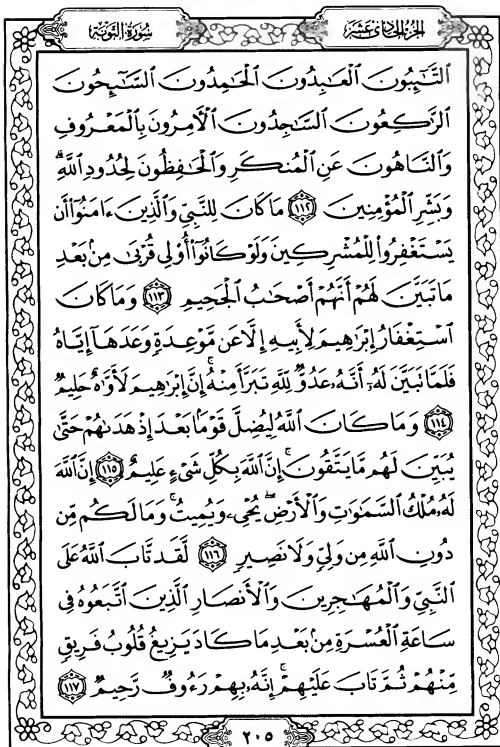 سُورَةُ التَّوْبَةِ
الجُزْءُ الحَادِىَ عَشَرَ
ٱلتَّٰٓئِبُونَ ٱلْعَٰبِدُونَ ٱلْحَٰمِدُونَ ٱلسَّٰٓئِحُونَ
ٱلرَّٰكِعُونَ ٱلسَّٰجِدُونَ ٱلْءَامِرُونَ بِٱلْمَعْرُوفِ
وَٱلنَّاهُونَ عَنِ ٱلْمُنكَرِ وَٱلْحَٰفِظُونَ لِحُدُودِ ٱللَّهِۗ
وَبَشِّرِ ٱلْمُؤْمِنِينَ ١١٢ مَا كَانَ لِلنَّبِىِّ وَٱلَّذِينَ ءَامَنُوٓا۟ أَن
يَسْتَغْفِرُوا۟ لِلْمُشْرِكِينَ وَلَوْ كَانُوٓا۟ أُو۟لِى قُرْبَىٰ مِنۢ بَعْدِ
مَا تَبَيَّنَ لَهُمْ أَنَّهُمْ أَصْحَٰبُ ٱلْجَحِيمِ ١١٣ وَمَا كَانَ
ٱسْتِغْفَارُ إِبْرَٰهِيمَ لِأَبِيهِ إِلَّا عَن مَّوْعِدَةٍ وَعَدَهَآ إِيَّاهُ
فَلَمَّا تَبَيَّنَ لَهُۥٓ أَنَّهُۥ عَدُوٌّ لِّلَّهِ تَبَرَّأَ مِنْهُۚ إِنَّ إِبْرَٰهِيمَ لَأَوَّٰهٌ حَلِيمٌ
١١٤ وَمَا كَانَ ٱللَّهُ لِيُضِلَّ قَوْمًۢا بَعْدَ إِذْ هَدَىٰهُمْ حَتَّىٰ
يُبَيِّنَ لَهُم مَّا يَتَّقُونَۚ إِنَّ ٱللَّهَ بِكُلِّ شَىْءٍ عَلِيمٌ ١١٥ إِنَّ ٱللَّهَ
لَهُۥ مُلْكُ ٱلسَّمَٰوَٰتِ وَٱلْأَرْضِۖ يُحْىِۦ وَيُمِيتُۚ وَمَا لَكُم مِّن
دُونِ ٱللَّهِ مِن وَلِىٍّ وَلَا نَصِيرٍ ١١٦ لَّقَد تَّابَ ٱللَّهُ عَلَى
ٱلنَّبِىِّ وَٱلْمُهَٰجِرِينَ وَٱلْأَنصَارِ ٱلَّذِينَ ٱتَّبَعُوهُ فِى
سَاعَةِ ٱلْعُسْرَةِ مِنۢ بَعْدِ مَا كَادَ يَزِيغُ قُلُوبُ فَرِيقٍ
مِّنْهُمْ ثُمَّ تَابَ عَلَيْهِمْۚ إِنَّهُۥ بِهِمْ رَءُوفٌ رَّحِيمٌ ١١٧
٢٠٥